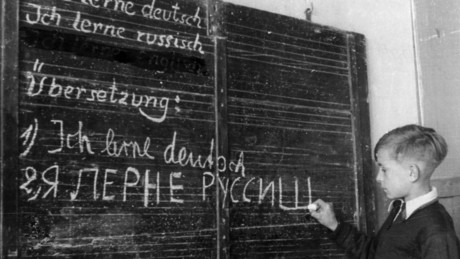 lerne deutsch
Ich lerne russisch
Übersetzung:
1) Ich lerne deutsch
2, Я ЛЕРНЕ РУССИЩ